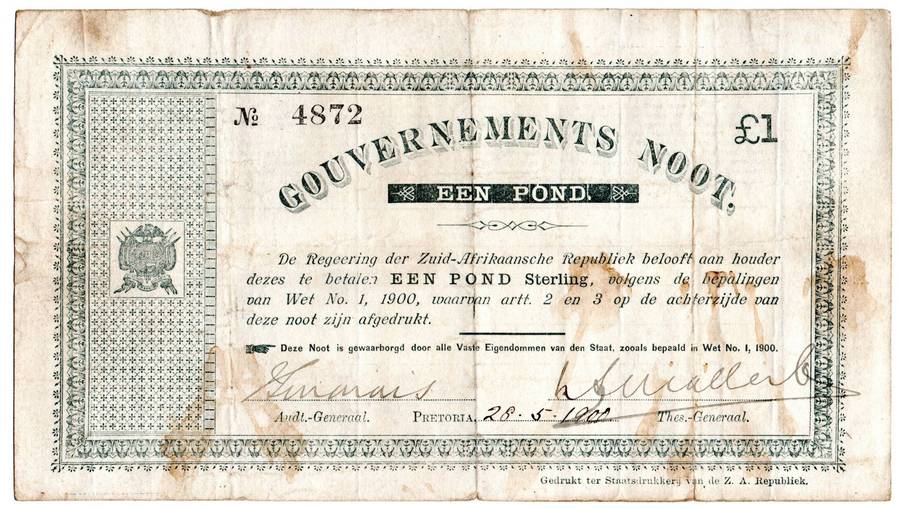 № 4872
£1
GOUVERNEMENTS NOOT.
EEN POND.
De Regeering der Zuid-Afrikaansche Republiek belooft aan houder
dezes te betalen EEN POND Sterling, volgens de bepalingen
van Wet No. 1, 1900, waarvan artt. 2 en 3 op de achterzijde van
deze noot zijn afgedrukt.
Deze Noot is gewaarborgd door alle Vaste Eigendommen van den Staat, zooals bepaald in Wet No. 1, 1900.
Audt.-Generaal. PRETORIA, 28-5-1900 Thes.-Generaal.
Gedrukt ter Staatsdrukkerij van de Z. A. Republiek.